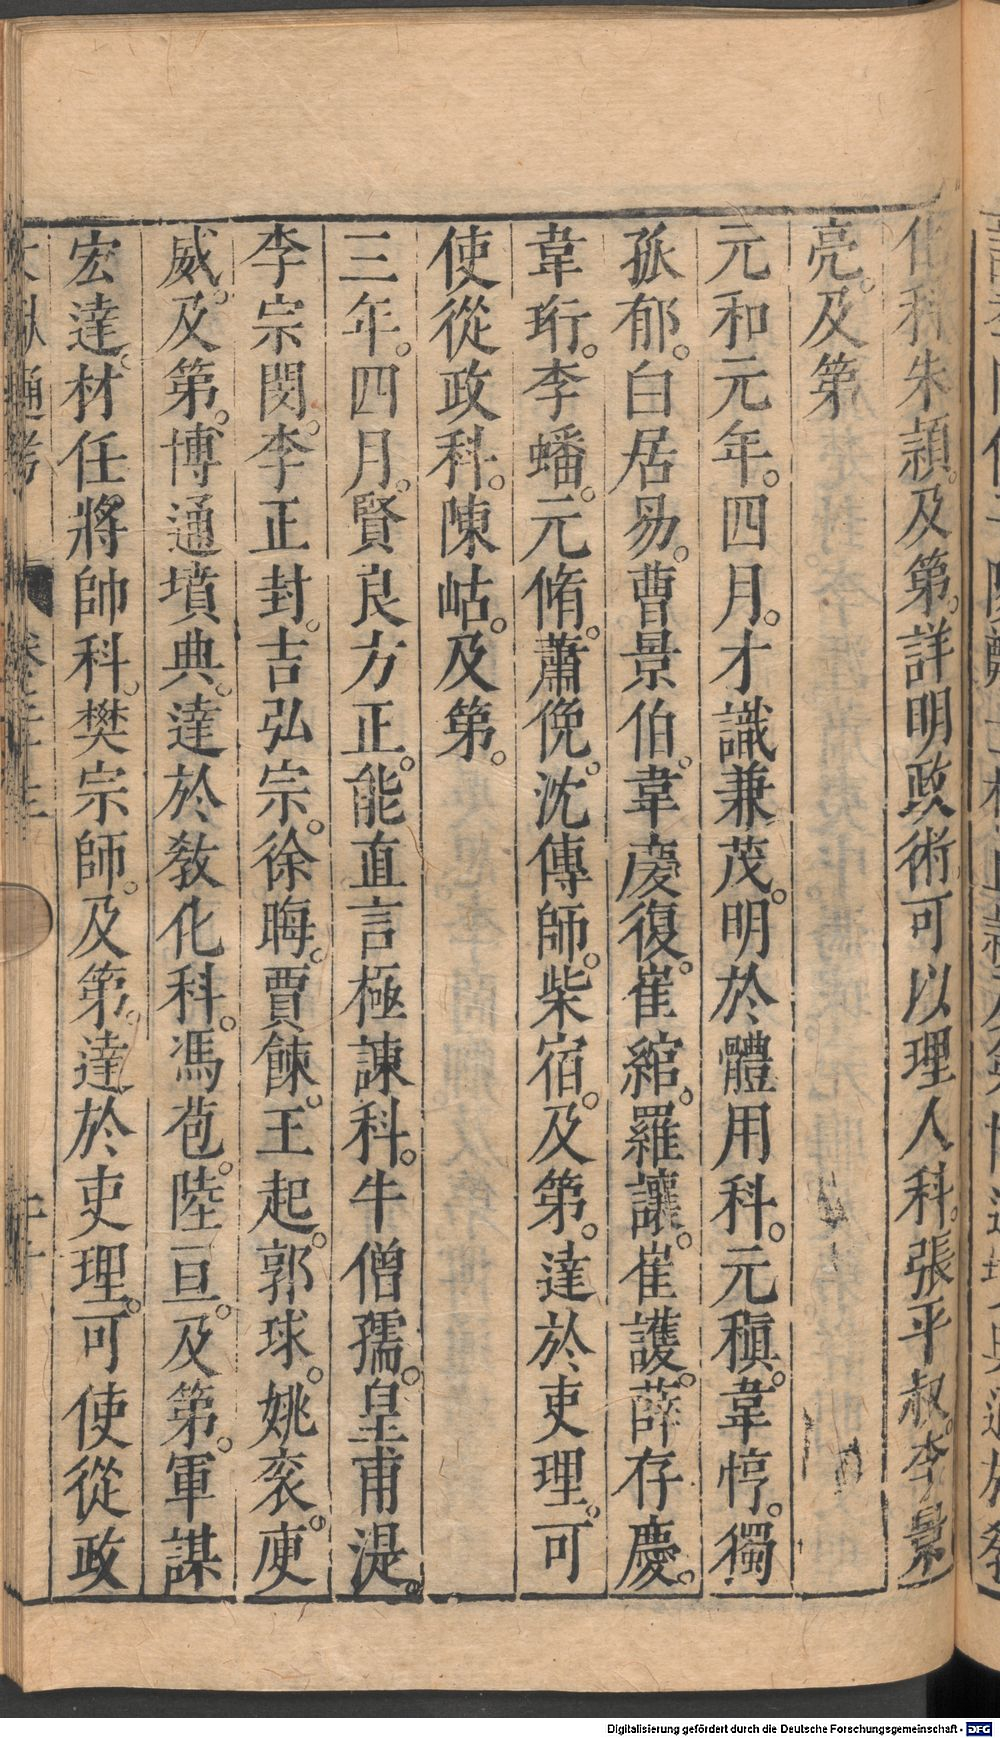 化科朱頴。及第。詳明政術可以理人科。張平叔。李景
亮。及第
元和元年。四月。才識兼茂。明於體用科。元稹。韋惇。獨
孤郁。白居易。曹景伯。韋慶復。崔綰。羅讓。崔護。薛存慶。
韋珩。李蟠。元脩。蕭俛。沈傳師。柴宿。及第。達於吏理。可
使從政科。陳岵。及第。
三年。四月。賢良方正。能直言極諫科。牛僧孺。皇甫湜。
李宗閔。李正封。吉弘宗。徐晦。賈餗。王起。郭球。姚袞。庾
威。及第。博通墳典。達於教化科。馮苞。陸亘。及第。軍謀
宏達。材任將帥科。樊宗師。及第。達於吏理。可使從政
Digitalisierung gefördert durch die Deutsche Forschungsgemeinschaft - DFG